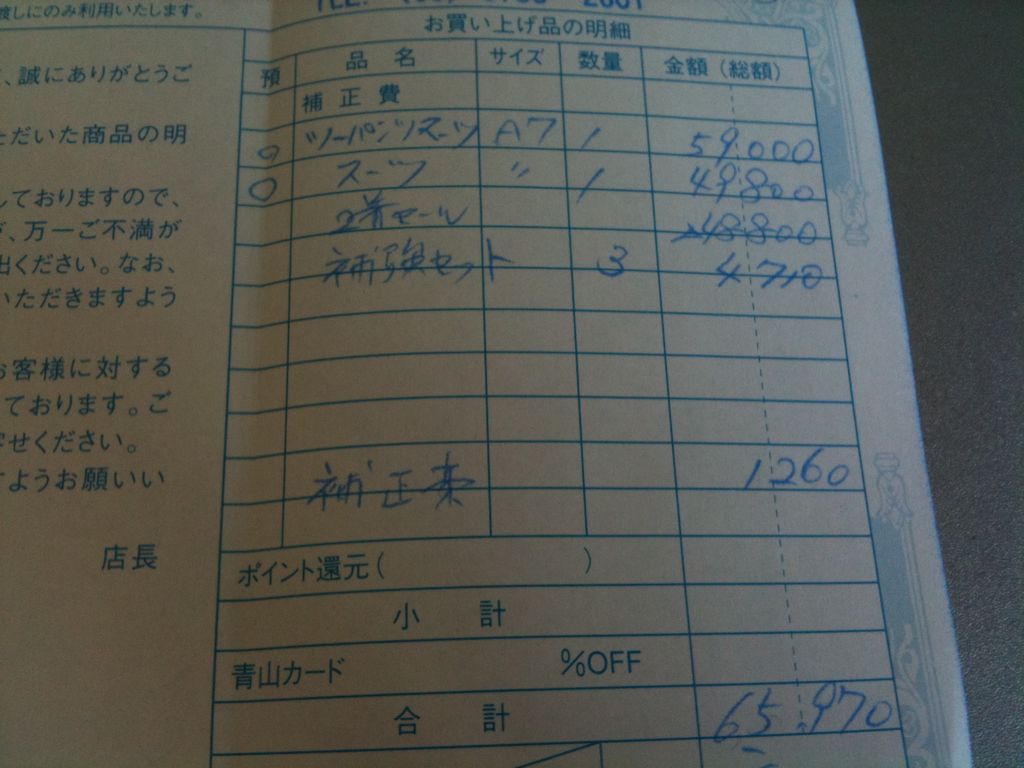 渡しにのみ利用いたします。
、誠にありがとうご
ただいた商品の明
しておりますので、
、万一ご不満が
出ください。なお、
いただきますよう
お客様に対する
ております。ご
せください。
すようお願いい
店長
お買い上げ品の明細
預 品名 サイズ 数量 金額(総額)
補正費
○ ツーパンツスーツ A7 1 59.000
○ スーツ 〃 1 49.800
2着セール -48.800
補強セット 3 4710
補正 1260
ポイント還元( )
小計
青山カード %OFF
合計 65.970